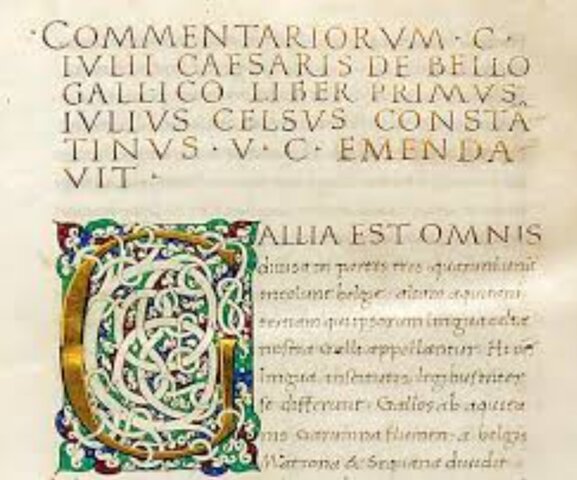 ·COMMENTARIORVM·C·
IVLII CAESARIS DE BELLO
GALLICO LIBER PRIMVS
IVLIVS CELSVS CONSTĀ
TINVS·V·C·EMENDA
VIT·
GALLIA EST OMNIS
diuisa in partis tres quarum unā
incolunt belgę aliam aquitani
tertiam qui ipsorum lingua
nostra Galli appellantur. Hi
lingua institutis legibus inter
se differunt. Gallos ab aquita
nis Garumna flumen a belgis
Matrona & Sequana diuidit